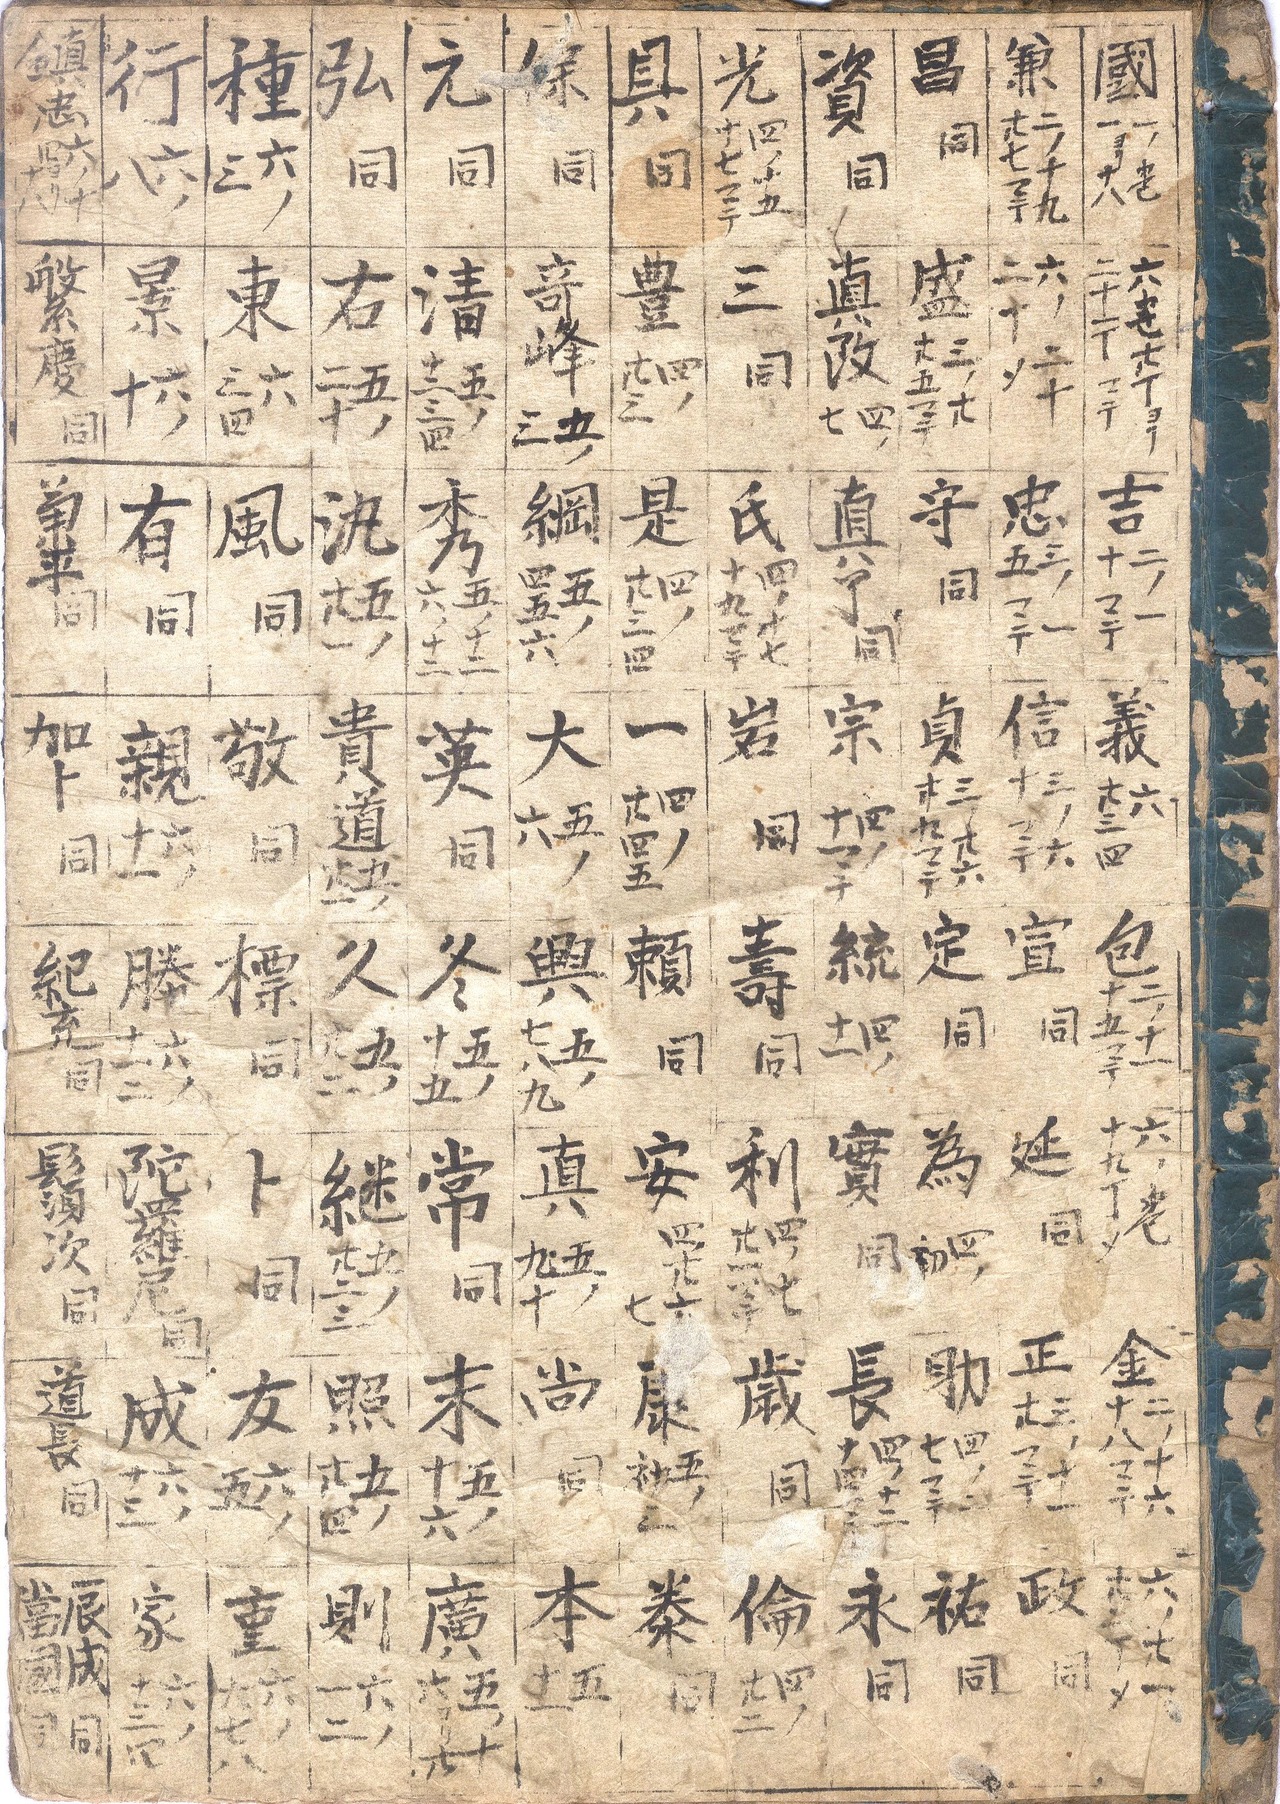 國 一ノ巻 一ヨリ十八
六巻廿一丁ヨリ 二十二丁マテ
吉 二ノ一 十マテ
義 六 廿三四
包 二ノ十一 十五マテ
六ノ巻 十九丁メ
金 二ノ十六 十八マテ
六ノ廿一
兼 二ノ十九 廿七マテ
六ノ二十 二十メ
忠 三ノ一 五マテ
信 三ノ六 十マテ
宣 同
延 同
正 三ノ十一 廿マテ
政 同
昌 同
盛 三ノ廿 廿五マテ
守 同
貞 三ノ廿六 廿九マテ
定 同
為 四ノ初
助 四ノ二 七マテ
祐 同
資 同
真改 四ノ七
直 同
宗 四ノ 十一マテ
統 四ノ 十一
實 同
長 四ノ十二 十四マテ
永 同
光 四ノ十五 十七マテ
三 同
氏 四ノ十七 十九マテ
岩 同
壽 同
利 四ノ廿 廿二マテ
歳 同
倫 四ノ 廿二
具 同
豊 四ノ 廿三
是 四ノ 廿三四
一 四ノ 廿四五
頼 同
安 四廿六 七
康 五ノ初 二
泰 同
保 同
奇峰 五ノ 三
綱 五ノ 四五六
大 五ノ 六
興 五ノ 七八九
真 五ノ 九十
尚 同
本 五 十一
元 同
清 五ノ 十二三四
秀 五ノ十二 六ノ十二
英 同
冬 五ノ 十五
常 同
末 五ノ 十六
廣 五ノ十
弘 同
右 五ノ 二十
氿 五ノ 廿一
貴道 五ノ
久 五ノ 廿二
継 五ノ 廿二三
照 五ノ 廿四
則 六ノ 一二
種 六ノ 三
東 六 三四
風 同
敬 同
標 同
卜 同
友 六ノ 五
重 六ノ 六七八
行 六ノ 八
景 六ノ 十
有 同
親 六ノ 十一
勝 六ノ 十一二
陀羅尼 同
成 六ノ 十三
家 六ノ 十三四
鎮忠 六ノ十
繁慶 同
菊平 同
加卜 同
紀充 同
鬚須次 同
道長 同
辰成 同
當國 同